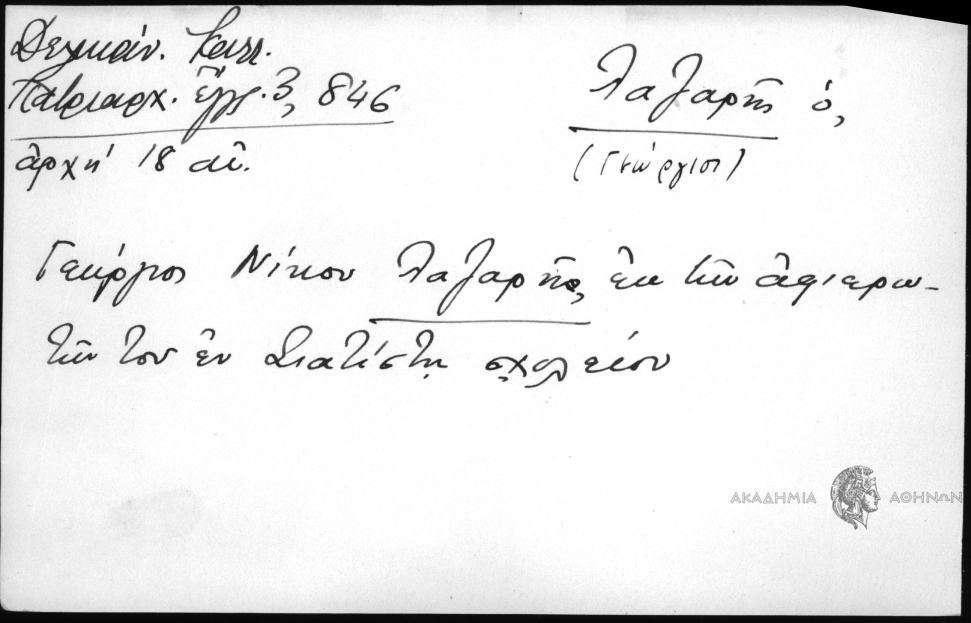 Δελικάν. Καλλ.
Πατριαρχ. ἔγγρ. 3, 846
ἀρχή 18 αἰ.
Λαζαρῆς ὁ,
(Γεώργιος)
Γεώργιος Νίκου Λαζαρῆς, ἐκ τῶν ἀφιερω-
τῶν του ἐν Σιατίστῃ σχολείου
ΑΚΑΔΗΜΙΑ ΑΘΗΝΩΝ